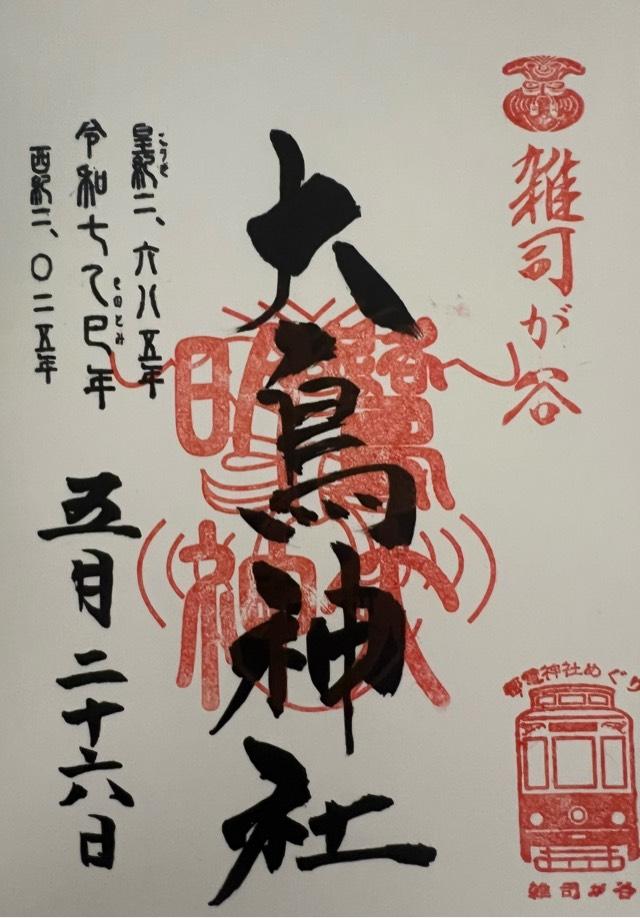 雑司が谷
大鳥神社
皇紀二、六八五年
こうき
令和七乙巳年
きのとみ
西紀二、〇二五年
五月二十六日
電神社めぐり
雑司が谷